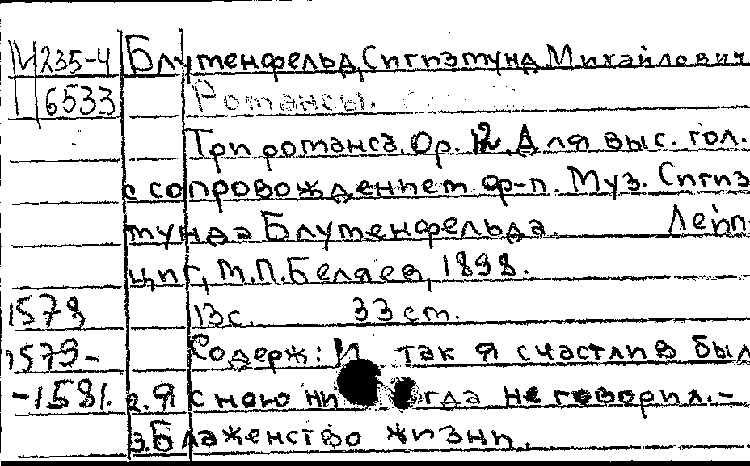 М 235-4 Блуменфельд, Сигизмунд Михайлович
6533 Романсы.
Три романса. Ор. 12. Для выс. гол.
с сопровождением ф-п. Муз. Сигиз
мунда Блуменфельда. Лейп
циг, М.П.Беляев, 1898.
1579 13с. 33 см.
1579- Содерж: И так я счастлив был
-1581. 2. Я с нею ни гда не говорил.-
3. Блаженство жизни.